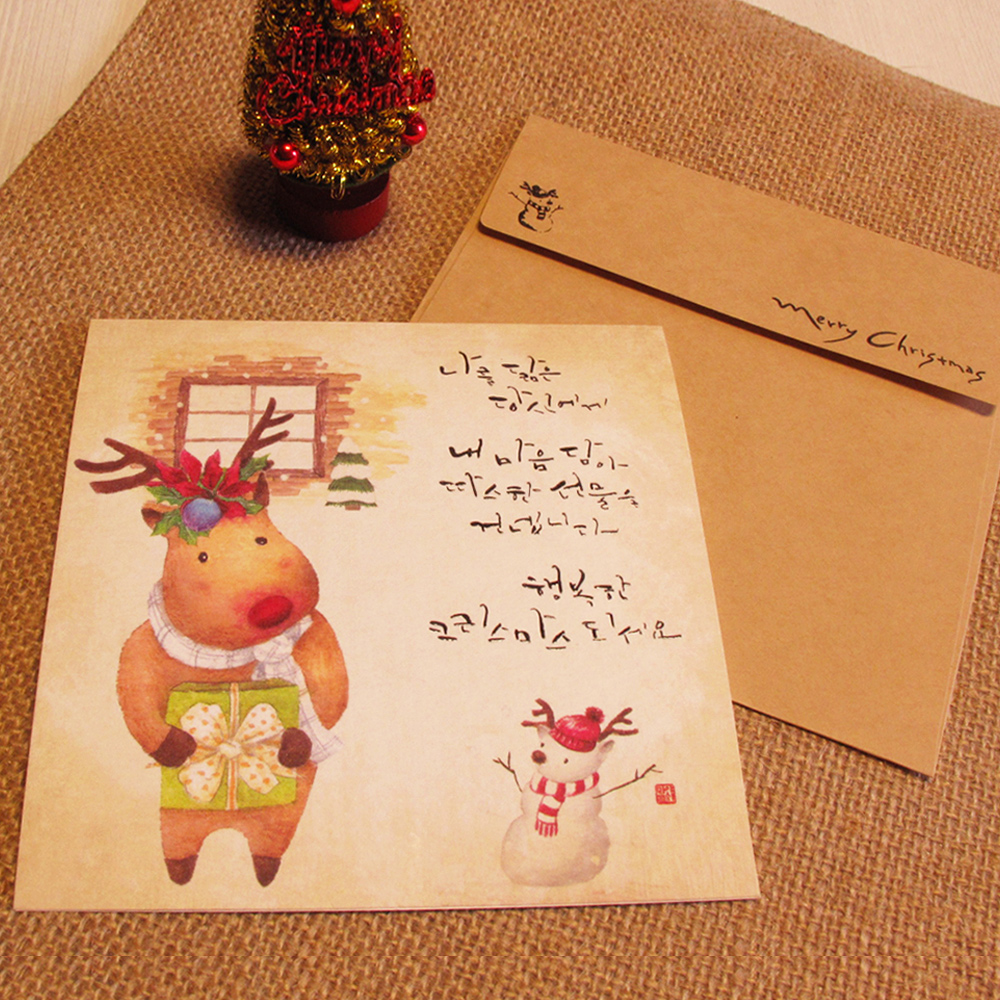 Merry
Christmas
Merry Christmas
나를 닮은
당신에게
내 마음 담아
따스한 선물을
건넵니다
행복한
크리스마스 되세요